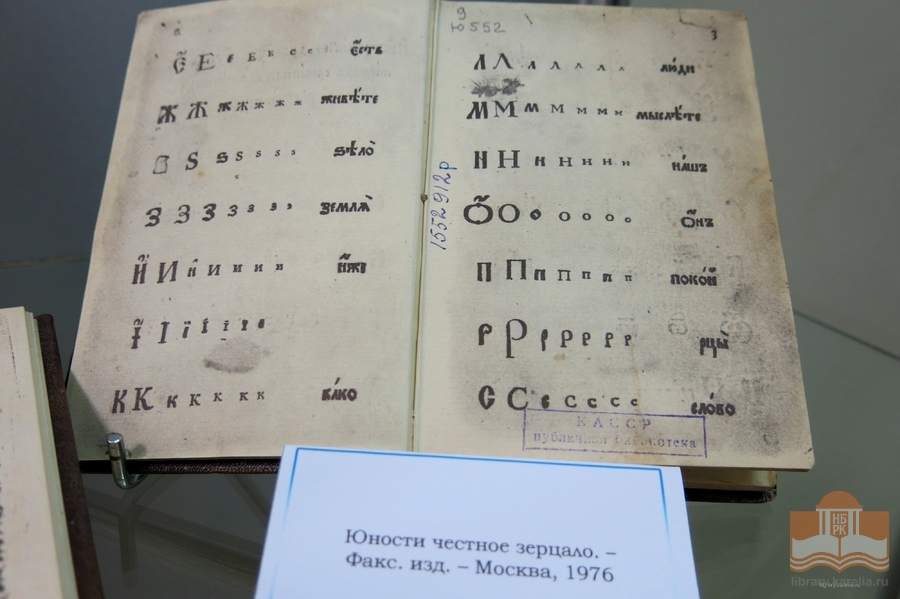 Є Е є Е є є є є҆сть
Ж Ж ж Ж ж ж ж живѣ́те
Ѕ S ѕ s s s s ѕѣло̀
З З З З з з з землѧ̀
И И и И и и и и҆́же
І І ї і ї ї і
К К к К к к к ка́ко
9
Ю552
3
Л Л л Л л л л лю́ди
М М м М м м м мыслѣ́те
Н Н н Н н н н на́шъ
Ѻ О о О о о о ѻ҆́нъ
П П п П п п п поко́й
Р Р р р р р р рцы̀
С С с С с с с сло́во
1552912р
КАССР
публичная библиотека
Юности честное зерцало. –
Факс. изд. – Москва, 1976
НБ
РК
library.karelia.ru